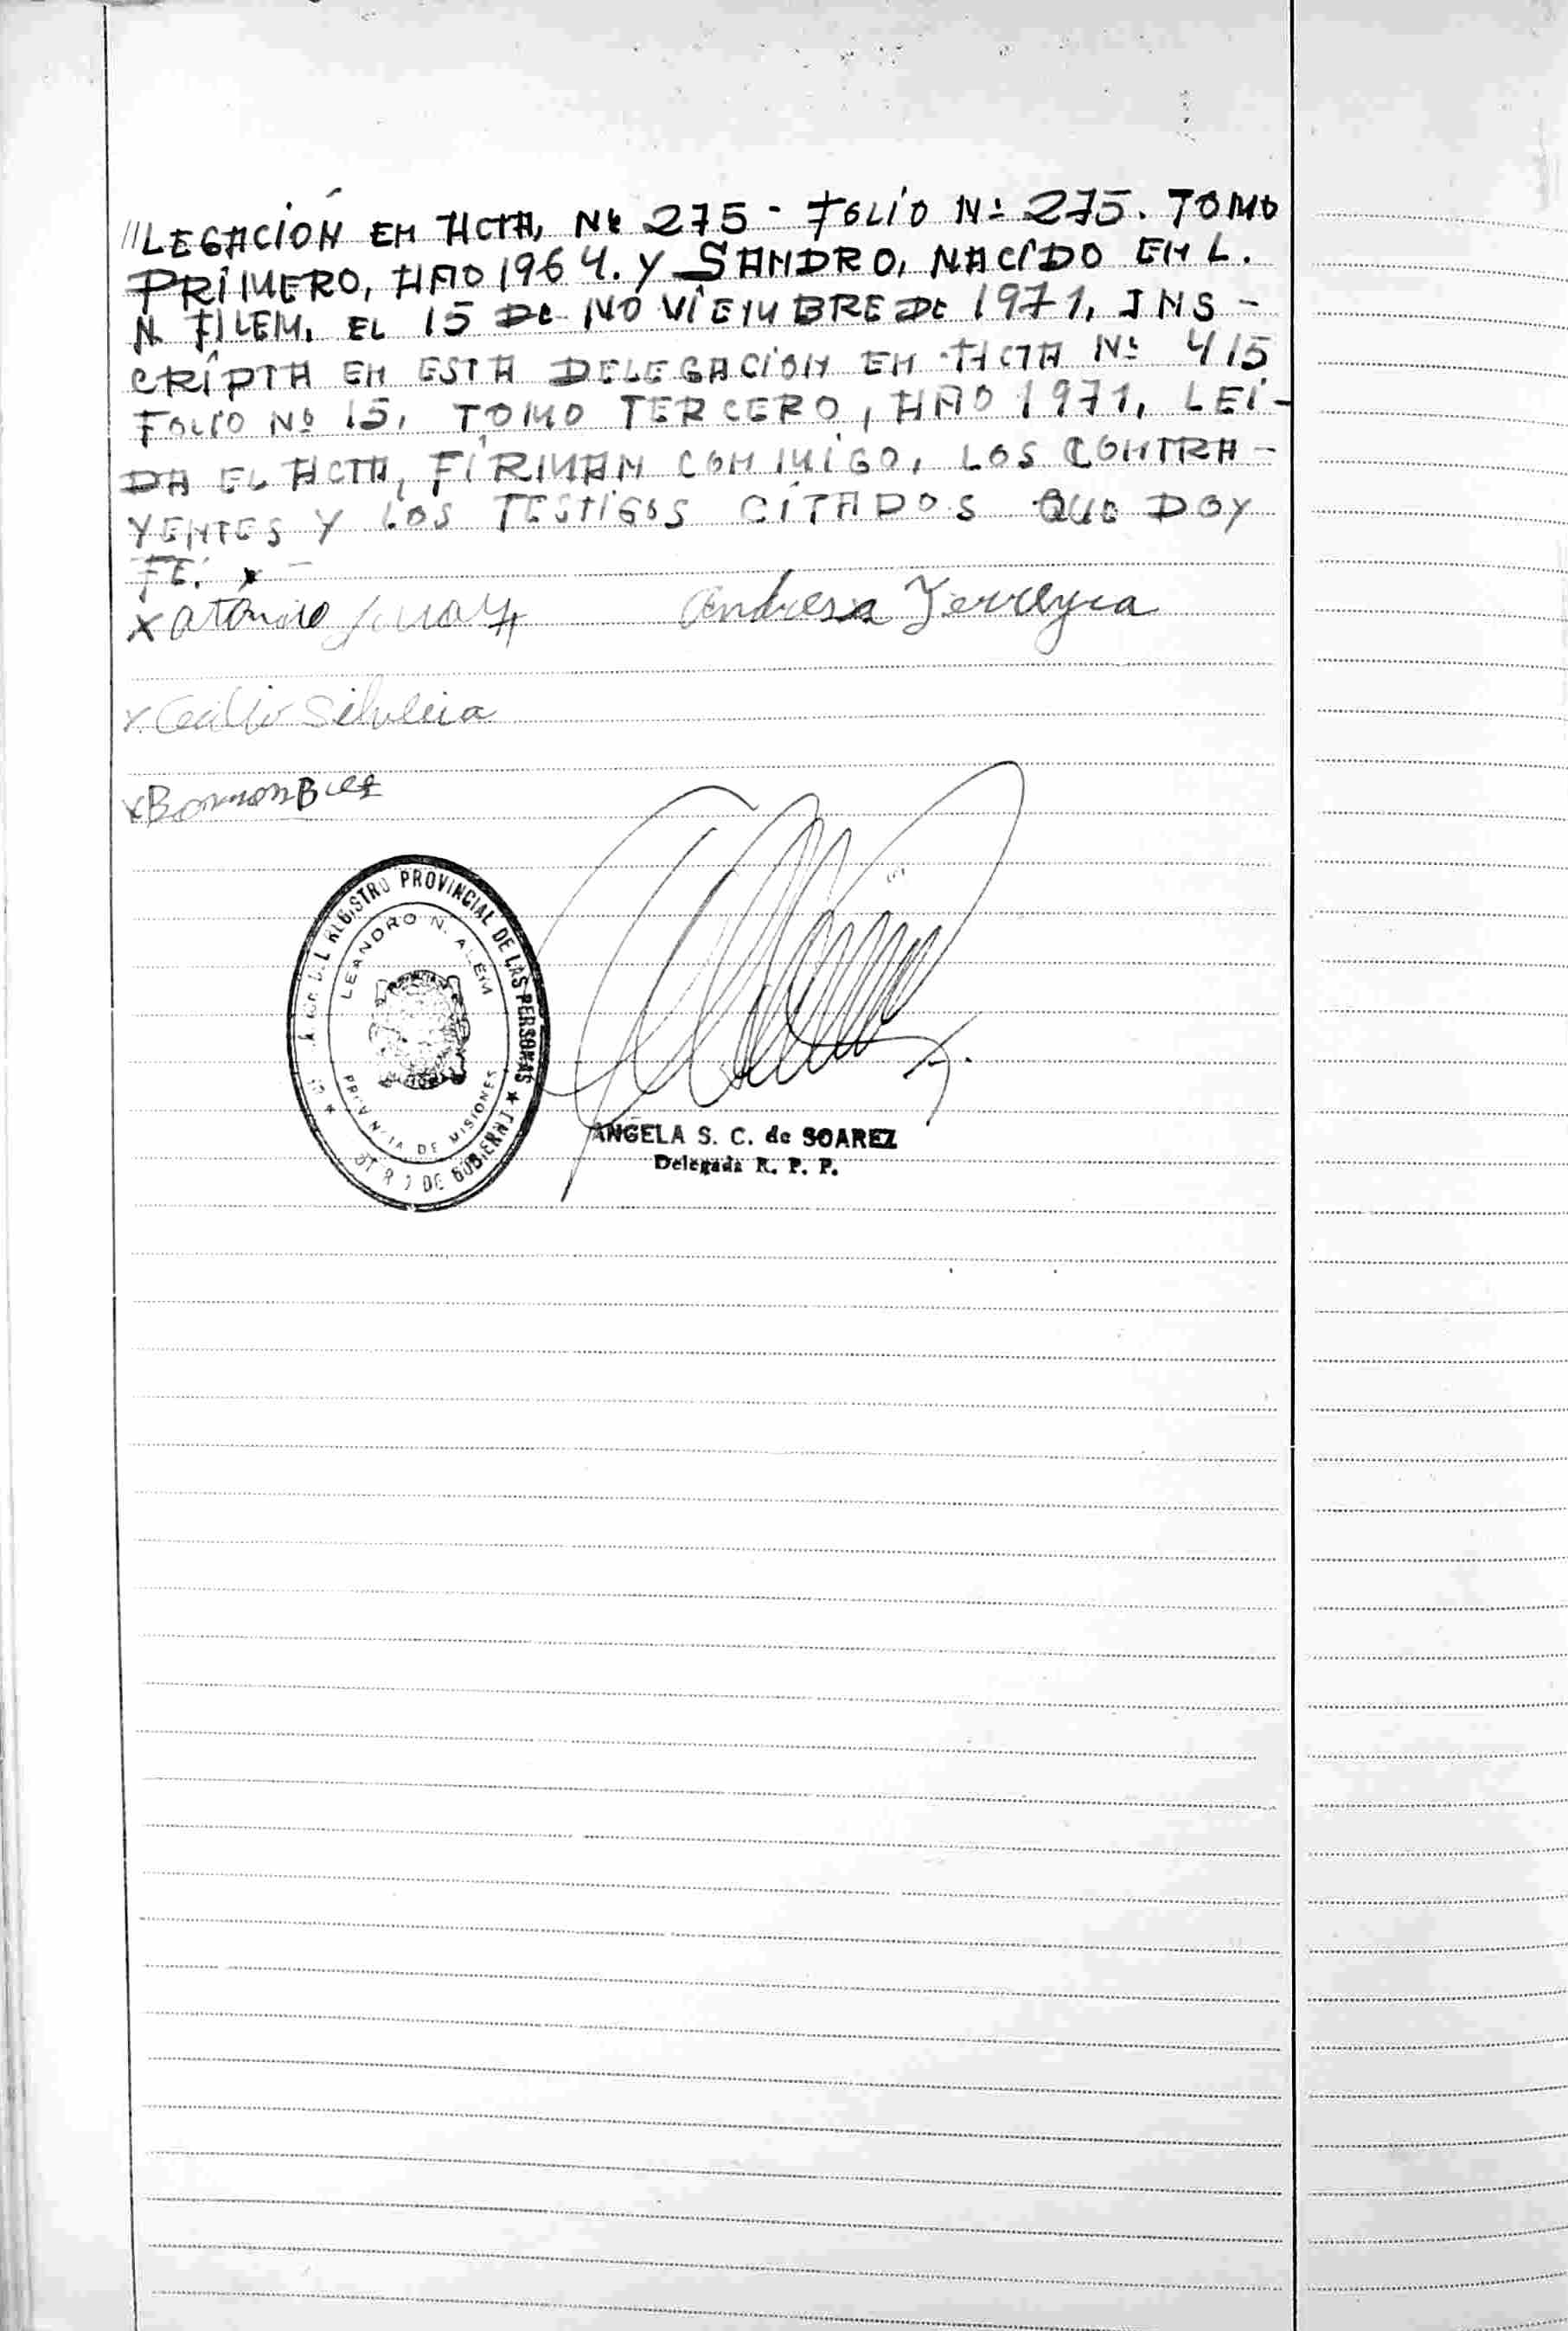 ///LEGACIÓN EN ACTA, Nº 275 - FOLIO Nº 275. TOMO
PRIMERO, AÑO 1964. Y SANDRO, NACIDO EN L.
N. ALEM, EL 15 DE NOVIEMBRE DE 1971, INS-
CRIPTA EN ESTA DELEGACION EN ACTA Nº 415
FOLIO Nº 15, TOMO TERCERO, AÑO 1971, LEI-
DA EL ACTA, FIRMAN CON MIGO, LOS CONTRA-
YENTES Y LOS TESTIGOS CITADOS QUE DOY
FE. x -
X Antonio Andresa Ferreyra
x Silveira
x
REGISTRO PROVINCIAL DE LAS PERSONAS ★
LEANDRO N. ALEM
PROVINCIA DE MISIONES
DE GOBIERNO
ANGELA S. C. de SOAREZ
Delegada R. P. P.